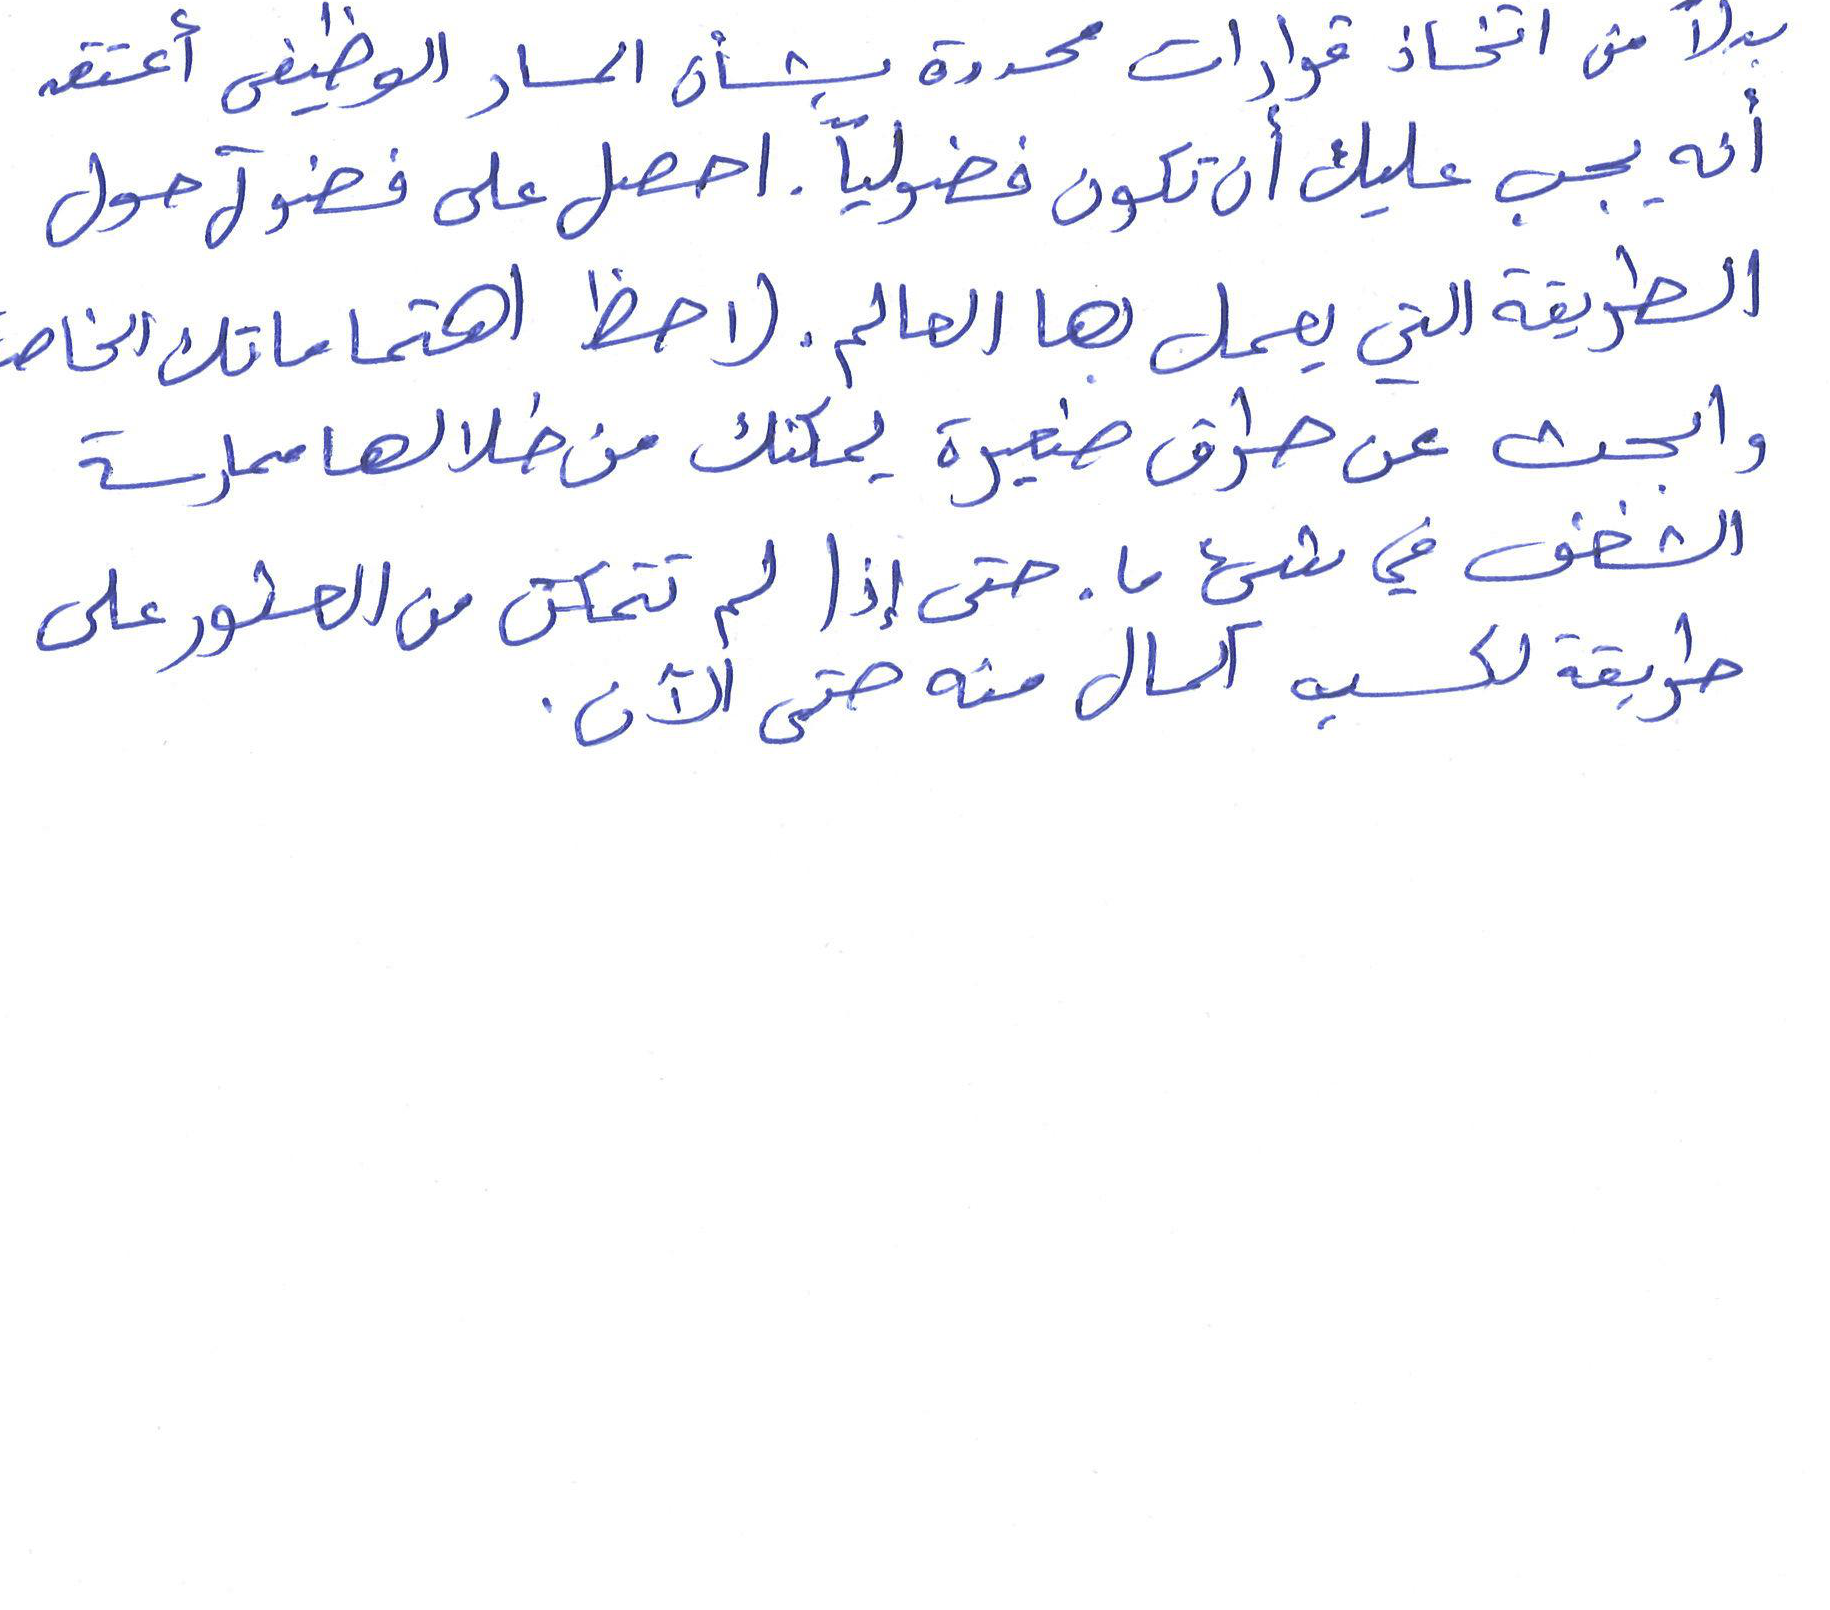 بدلاً من اتخاذ قرارات محددة بشأن المسار الوظيفى أعتقد
أنه يجب عليك أن تكون فضولياً. احصل على فضول حول
الطريقة التي يعمل بها العالم. لاحظ اهتماماتك الخاصة
وابحث عن طرق صغيرة يمكنك من خلالها ممارسة
الشغف في شئ ما. حتى إذا لم تتمكن من العثور على
طريقة لكسب المال منه حتى الآن.